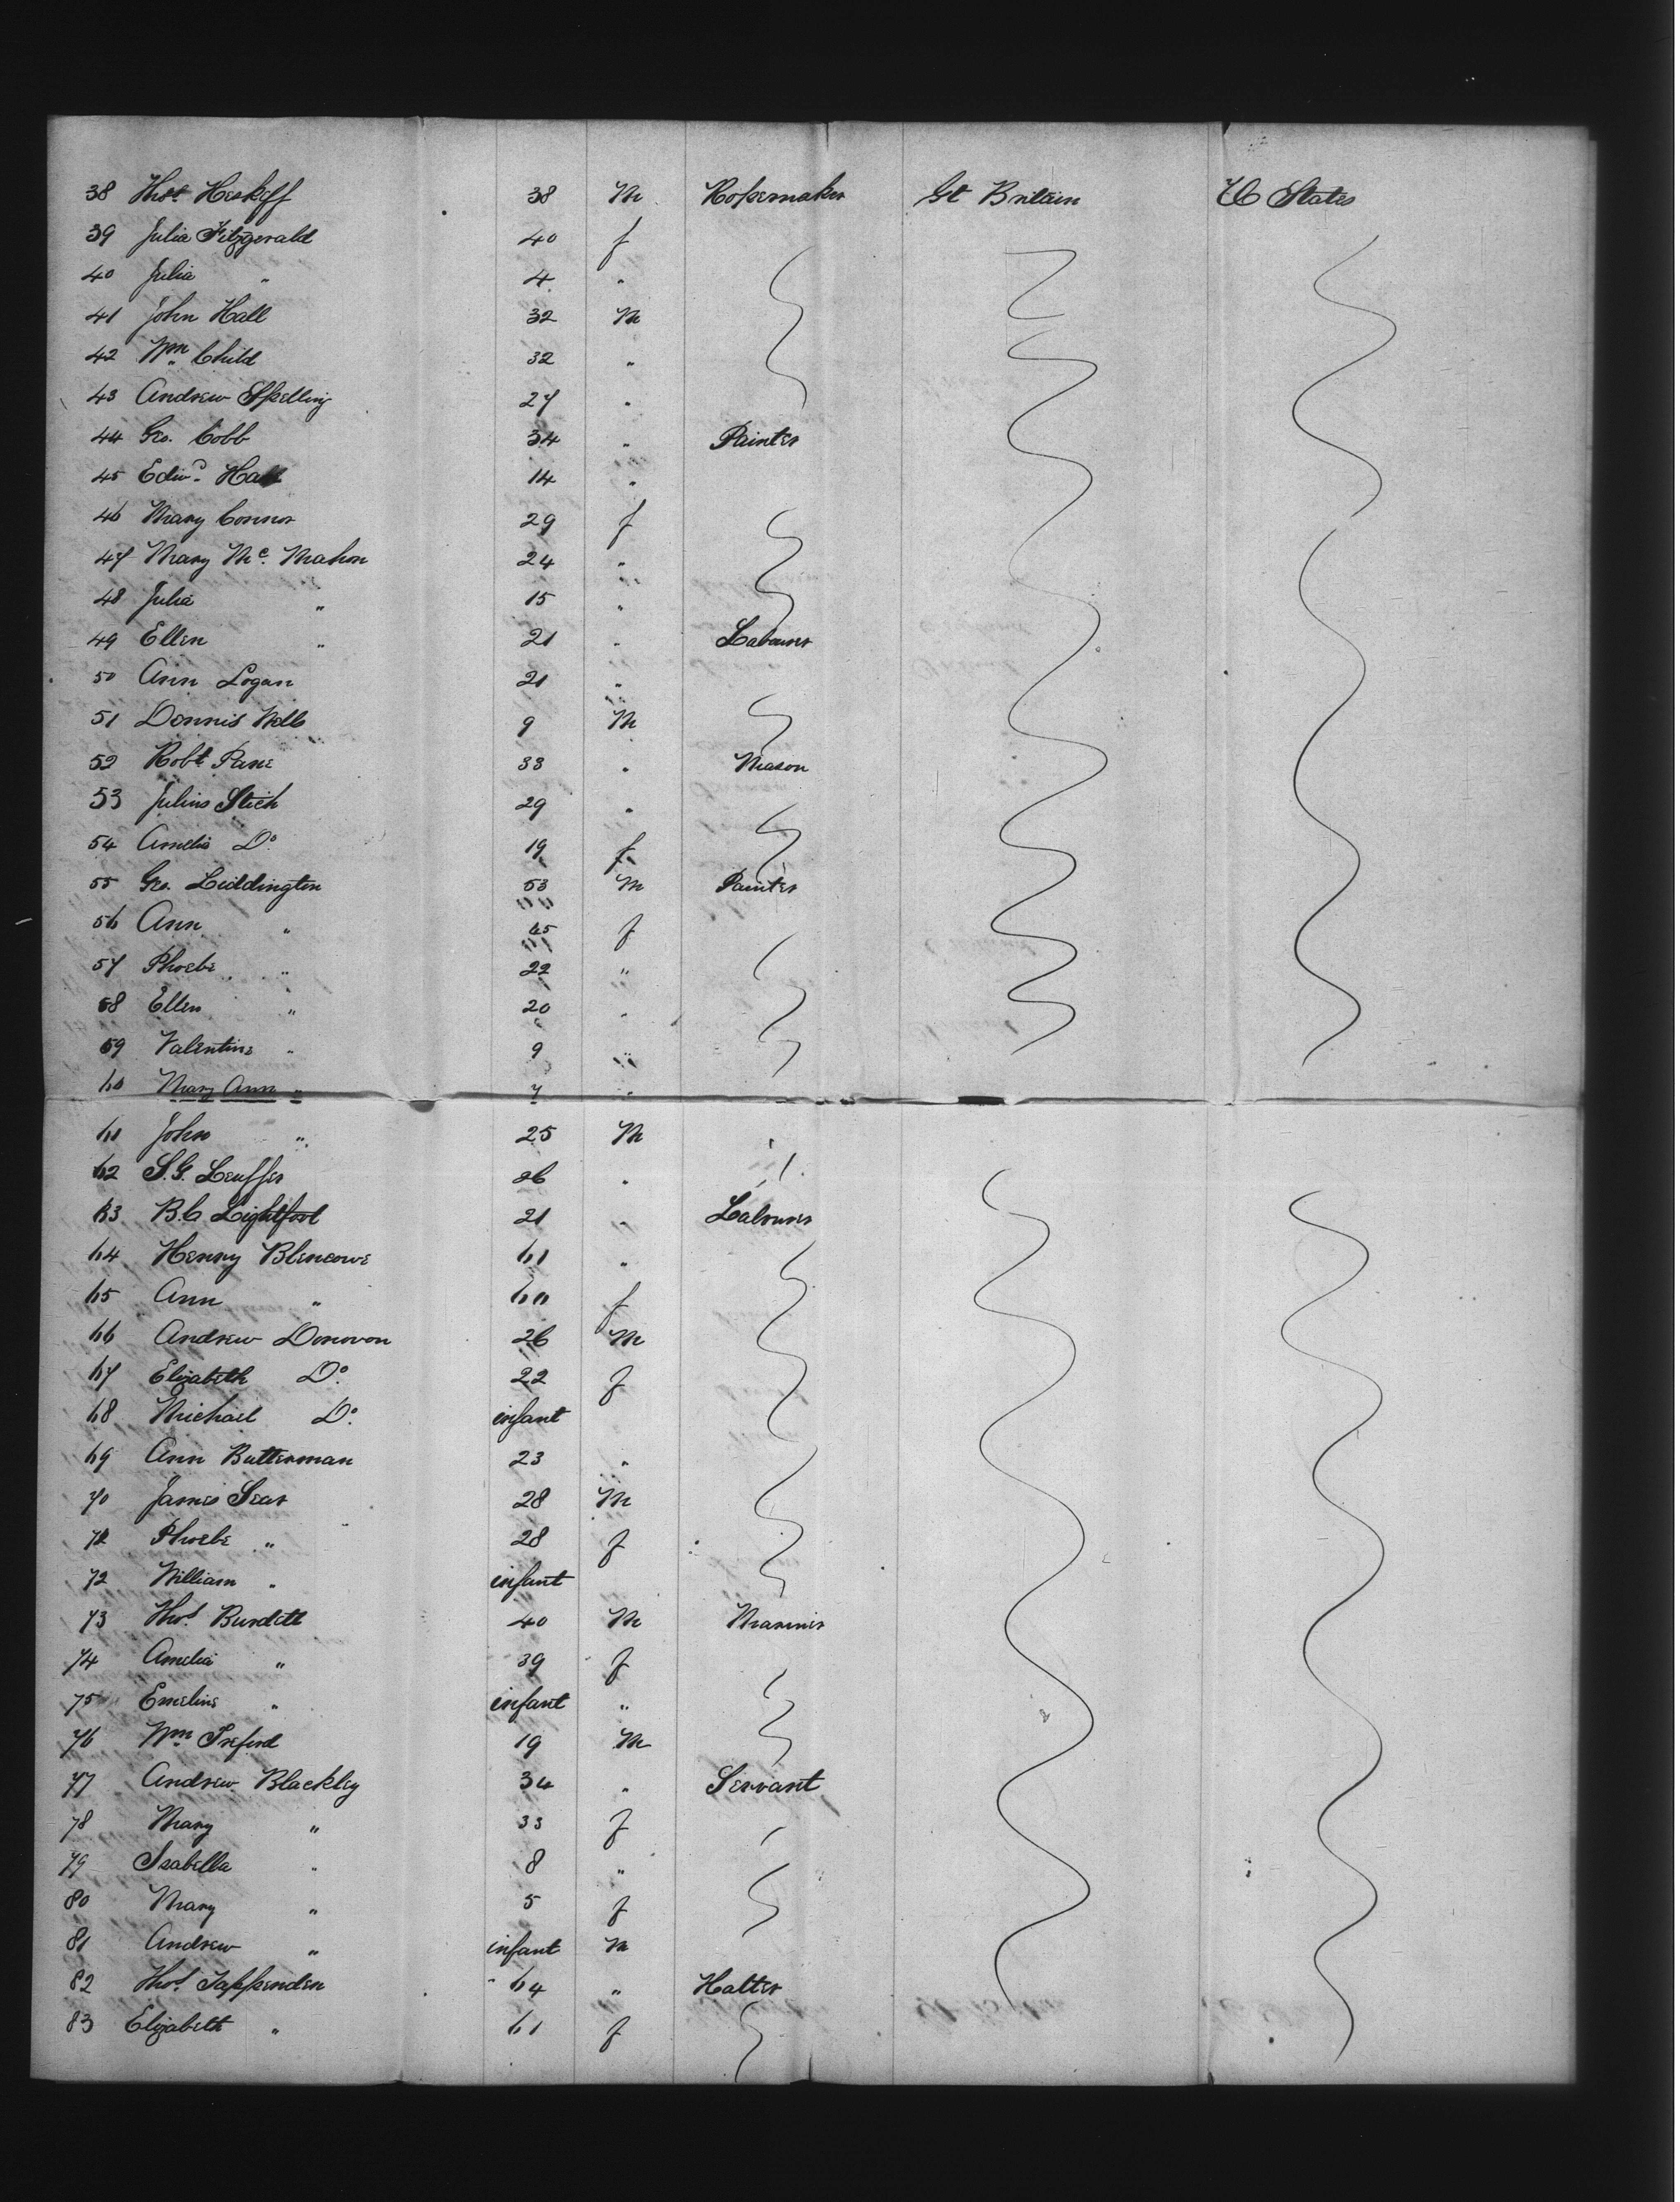 38 Thos Heskeff 38 M Ropemaker Gt Britain U States
39 Julia Fitzgerald 40 f
40 Julia " 4 "
41 John Hall 32 M
42 Wm Child 32 "
43 Andrew Spelling 27 "
44 Geo. Cobb 34 " Painter
45 Edwd. Hall 14 "
46 Mary Connor 29 f
47 Mary Mc. Mahon 24 "
48 Julia " 15 "
49 Ellen " 21 " Labourer
50 Ann Logan 21 "
51 Dennis Webb 9 M
52 Robt Pane 33 " Mason
53 Julius Stich 29 "
54 Amelia Do. 19 f
55 Geo. Liddington 53 M Painter
56 Ann " 45 f
57 Phoebe " 22 "
58 Ellen " 20 "
59 Valentine " 9 "
60 Mary Ann " 7 "
61 John " 25 M
62 S.G. 26 "
63 B.C Lightfoot 21 " Labourer
64 Henry Blencowe 61 "
65 Ann " 60 f
66 Andrew Donovon 26 M
67 Elizabeth Do. 22 f
68 Michael Do. infant
69 Ann Butterman 23 "
70 James Sear 28 M
72 Phoebe " 28 f
72 William " infant
73 Thos. Burdett 40 M Mariner
74 Amelia " 39 f
75 Emeline " infant "
76 Wm 19 M
77 Andrew Blackley 34 " Servant
78 Mary " 33 f
79 Isabella " 8 "
80 Mary " 5 f
81 Andrew " infant M
82 Thos. Tappenden 64 " Hatter
83 Elizabeth " 61 f